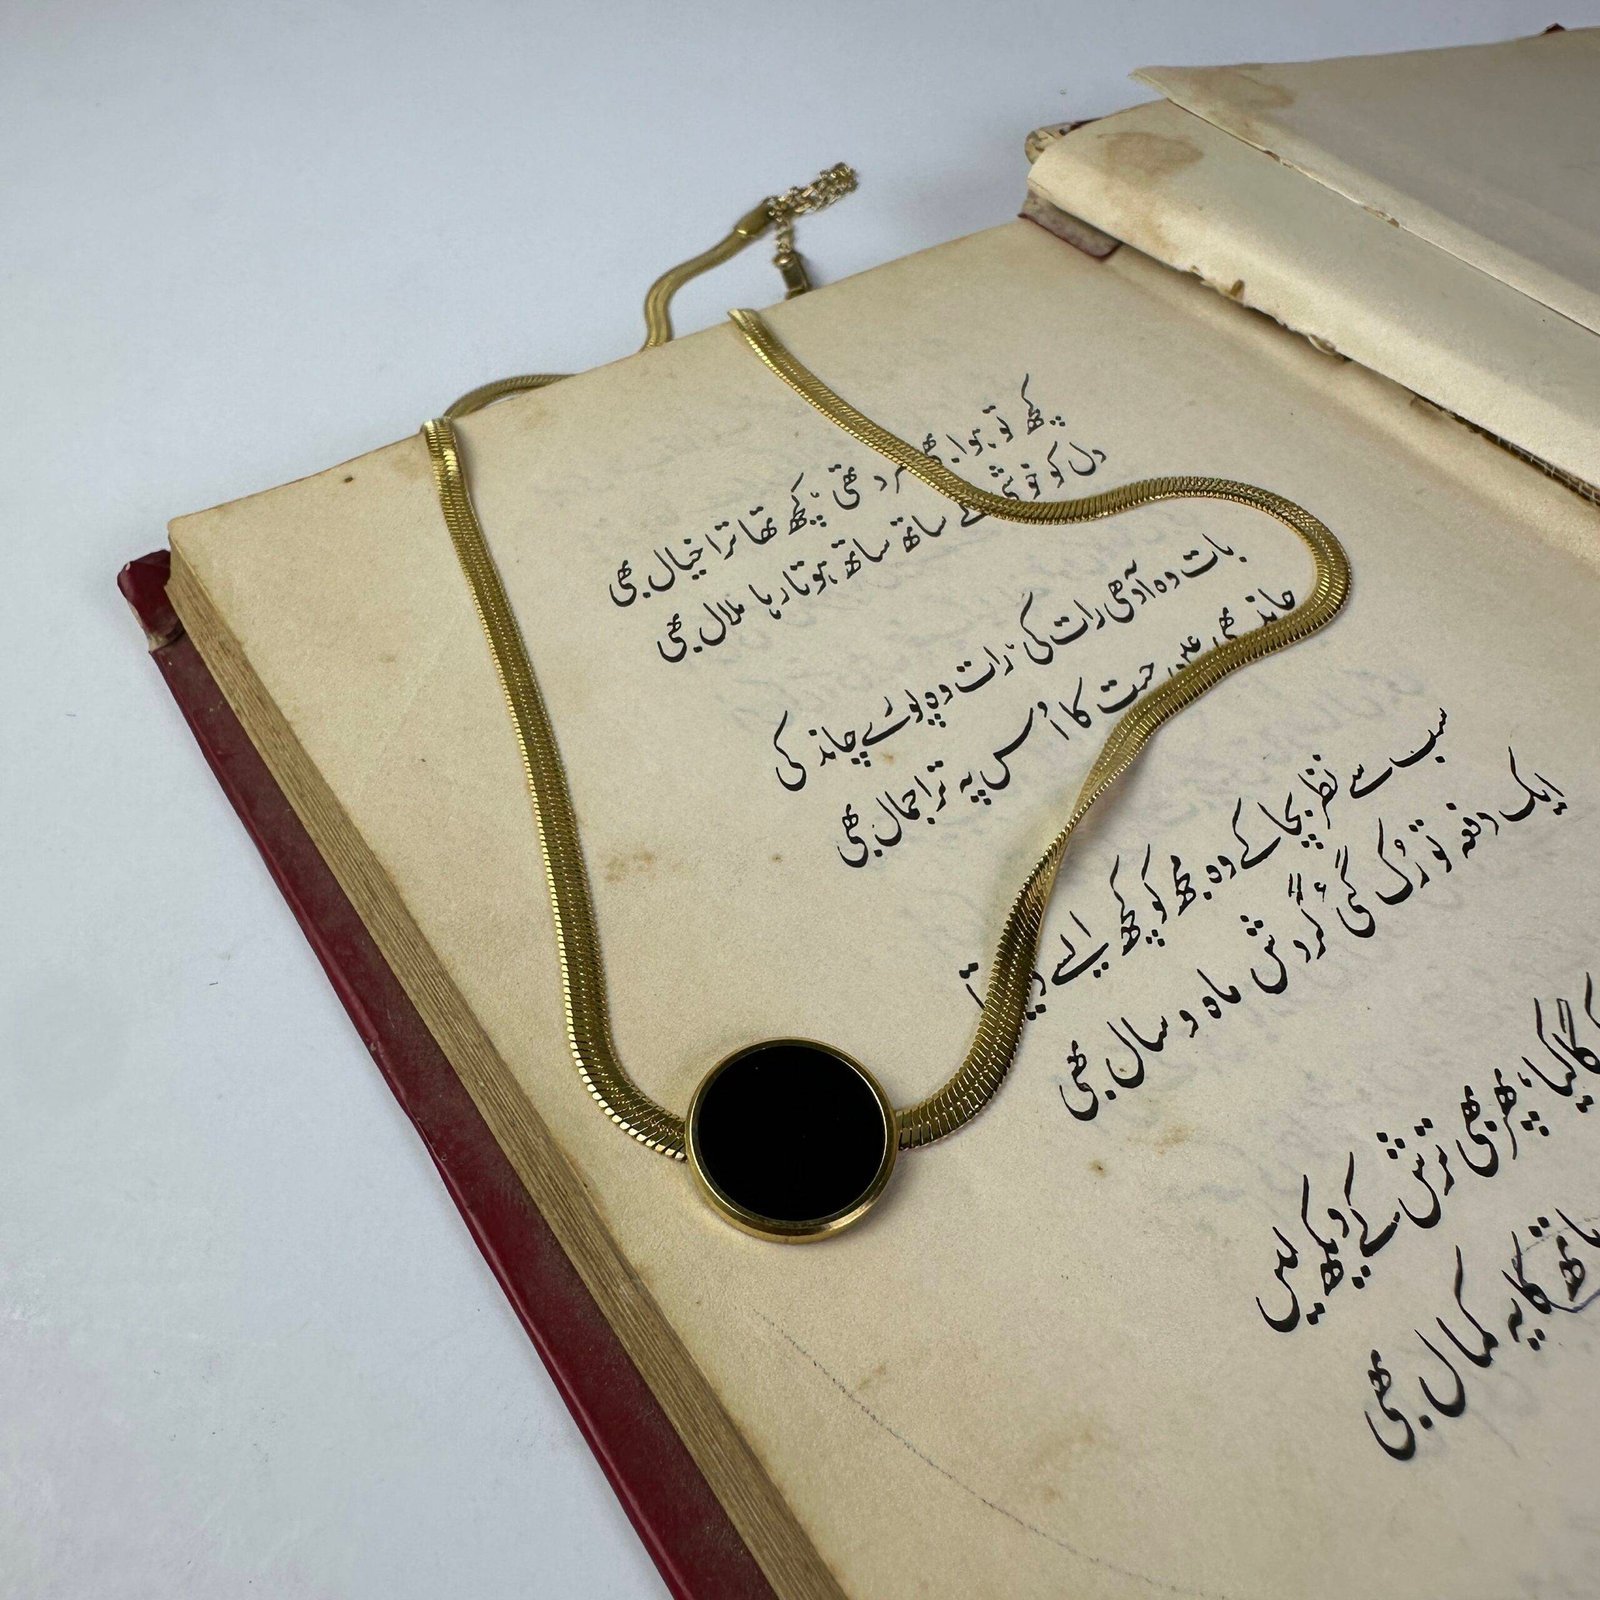 کچھ تو ہوا بھی سرد تھی، کچھ تھا ترا خیال بھی
دل کو خوشی کے ساتھ ساتھ ہوتا رہا ملال بھی
بات وہ آدھی رات کی، رات وہ پورے چاند کی
چاند بھی عین چیت کا اُس پہ ترا جمال بھی
سب سے نظر بچا کے وہ مجھ کو کچھ ایسے دیکھتا
ایک دفعہ تو رُک گئی گردشِ ماہ و سال بھی
گیا، پھر بھی ترش کے دیکھ لیں
کا یہ کمال بھی